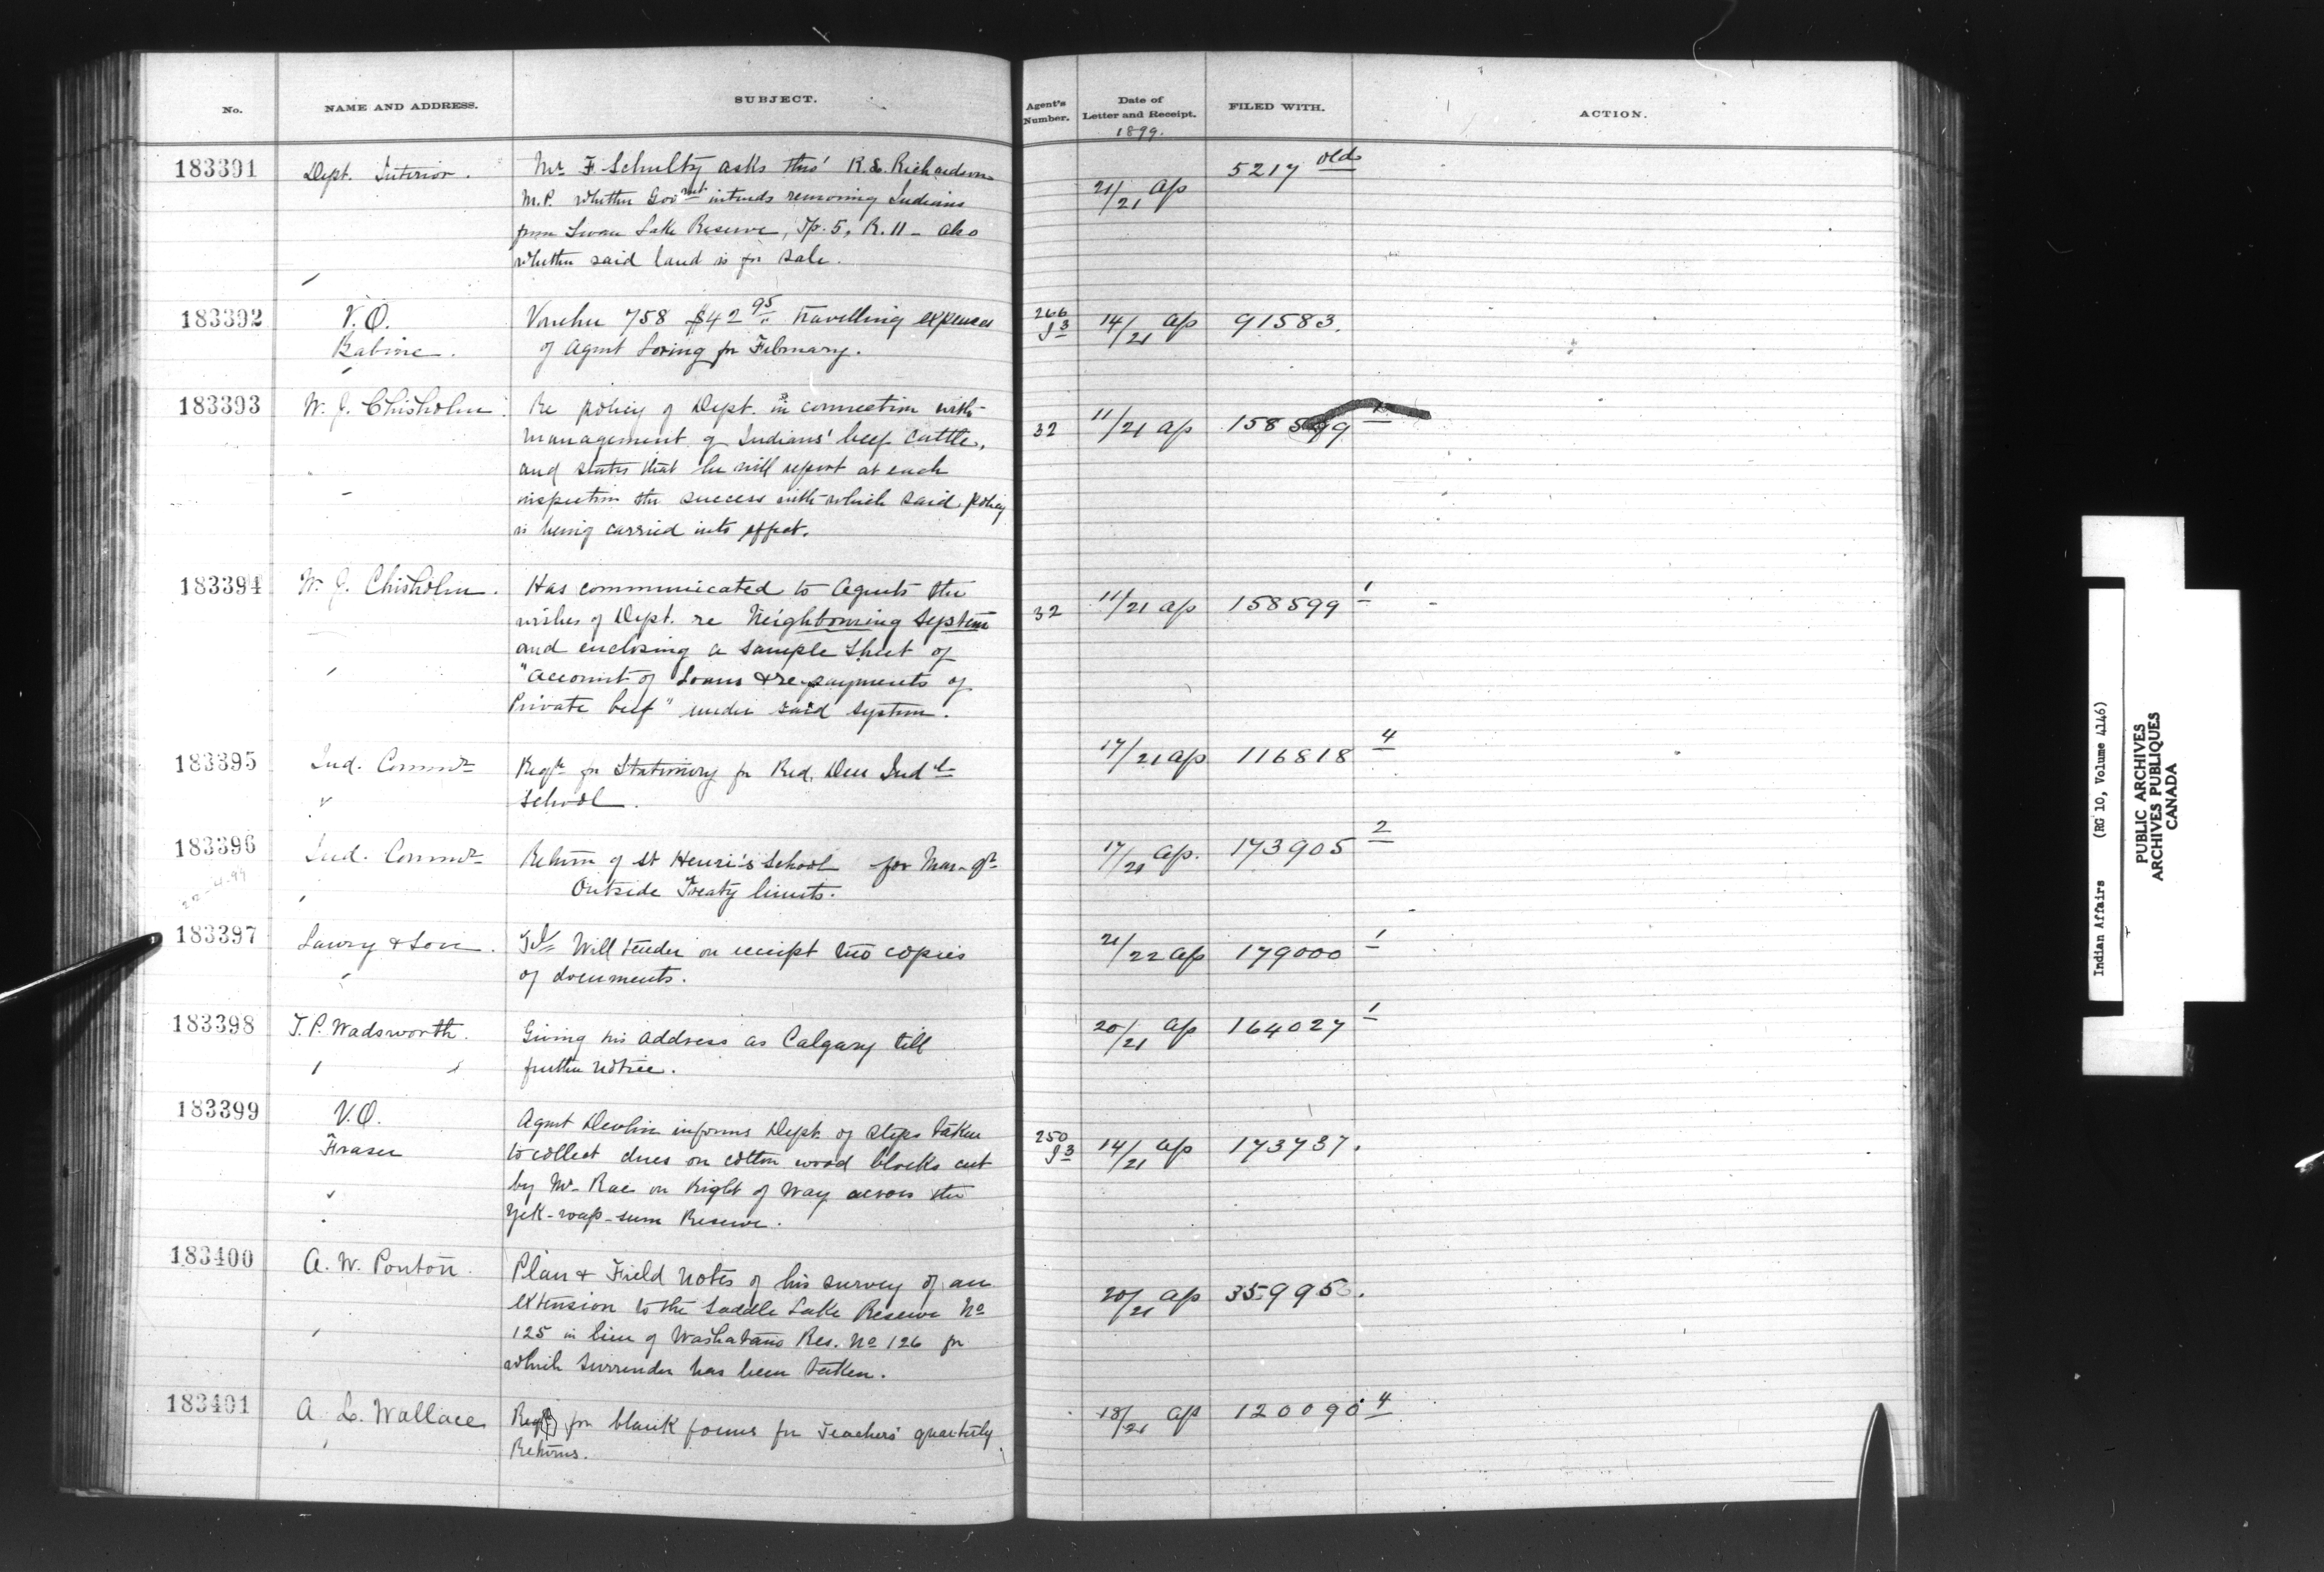 No.
NAME AND ADDRESS.
SUBJECT.
Agent's Number.
Date of Letter and Receipt.
1899.
FILED WITH.
ACTION.
183391 Dept. Interior. Mr. F. Schultz asks thro' R. L. Richardson
M.P. whether Govmt intends removing Indians
from Swan Lake Reserve, Tp. 5, R. 11 - also
whether said land is for sale.
21/21 Ap 5217 old
183392 V.O. Babine. Voucher 758 $42 95 travelling expenses
of Agent Loring for February.
266 J3 14/21 Ap 91583.
183393 W. J. Chisholm. Re policy of Dept. in connection with
management of Indians' beef cattle,
and states that he will report at each
inspection the success with which said policy
is being carried into effect.
32 11/21 Ap 158599
183394 W. J. Chisholm. Has communicated to Agents the
wishes of Dept. re Neighbouring System
and enclosing a sample sheet of
"Account of Loans & re-payments of
Private beef" under said system.
32 11/21 Ap 158599 1
183395 Ind. Commr Reqn for Stationery for Red Deer Indl
School.
17/21 Ap 116818 4
183396 Ind. Commr Return of St Henri's School for Mar. qr
Outside Treaty limits.
17/21 Ap. 173905 2
183397 Lawry & Son. Tel. Will tender on receipt two copies
of documents.
21/22 Ap 179000 1
183398 T. P. Wadsworth. Giving his address as Calgary till
further notice.
20/21 Ap 164027 1
183399 V.O. Fraser Agent Devlin informs Dept. of steps taken
to collect dues on cotton wood blocks cut
by Mr. Rae on Right of Way across the
Yek-wap-sum Reserve.
250 J3 14/21 Ap 173737.
183400 A. W. Ponton. Plan & Field notes of his survey of an
extension to the Saddle Lake Reserve No
125 in lieu of Washatano Res. No 126 for
which surrender has been taken.
20/21 Ap
183401 A. L. Wallace Reqn for blank forms for Teachers' quarterly
Returns.
18/21 Ap 120090 4
Indian Affairs (RG 10, Volume 4146)
PUBLIC ARCHIVES
ARCHIVES PUBLIQUES
CANADA